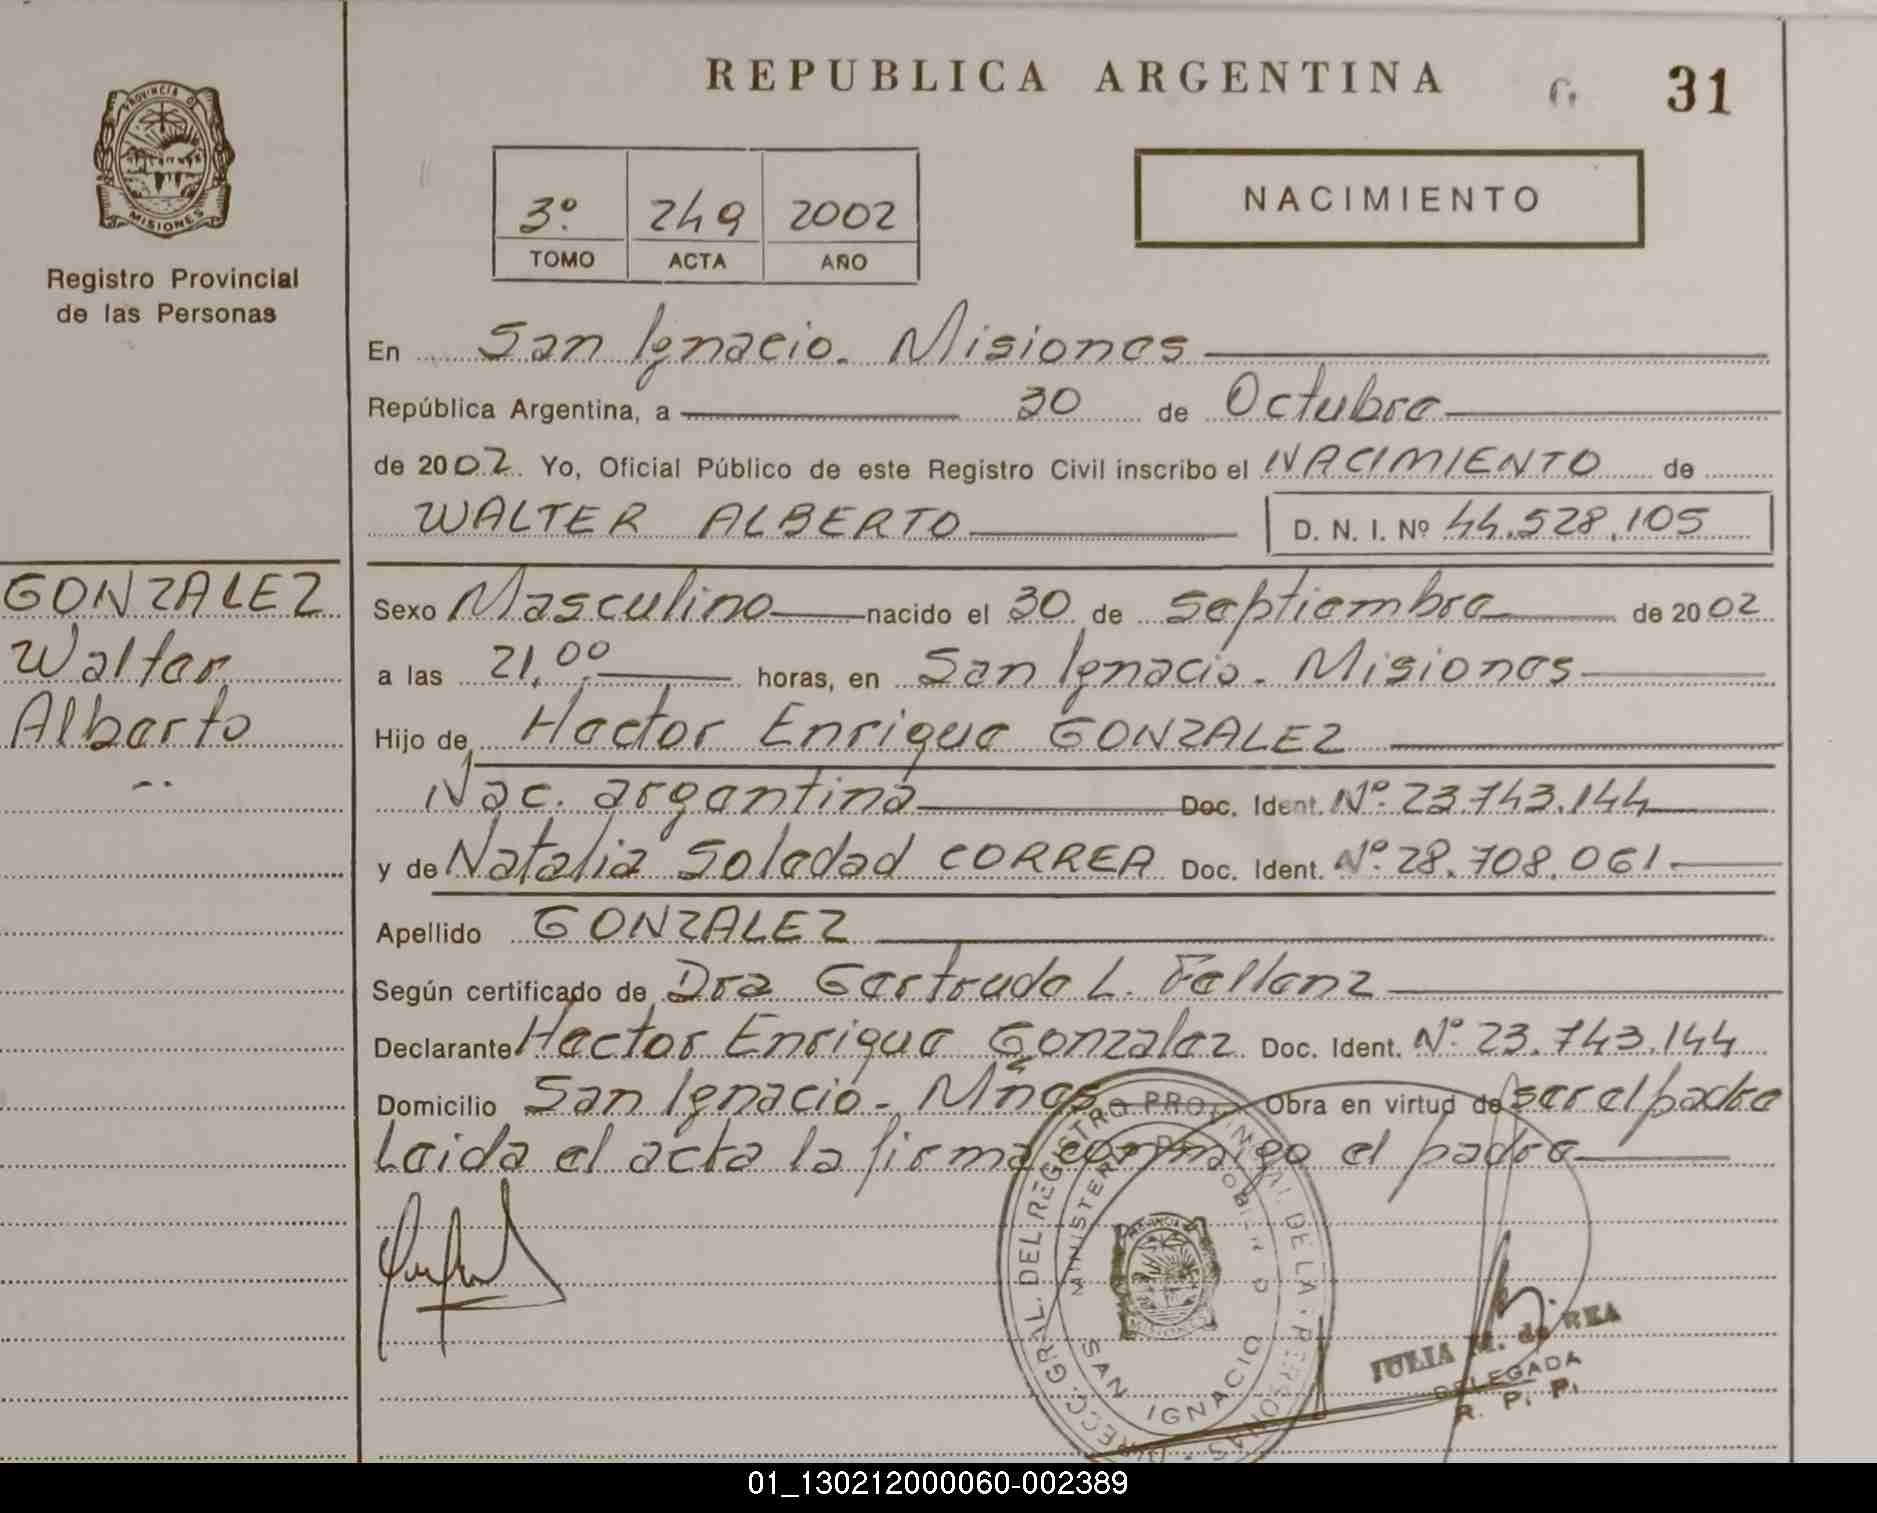 REPUBLICA ARGENTINA
31
PROVINCIA D
MISIONES
Registro Provincial
de las Personas
3º. 249 2002
TOMO ACTA AÑO
NACIMIENTO
En San Ignacio. Misiones
República Argentina, a 30 de Octubre
de 2002. Yo, Oficial Público de este Registro Civil inscribo el NACIMIENTO de
WALTER ALBERTO D. N. I. Nº 44.528.105
GONZALEZ
Walter
Alberto
Sexo Masculino nacido el 30 de Septiembre de 2002
a las 21,00 horas, en San Ignacio. Misiones
Hijo de Hector Enrique GONZALEZ
Nac. argentina Doc. Ident. Nº. 23.743.144
y de Natalia Soledad CORREA Doc. Ident. Nº. 28.708.061.
Apellido GONZALEZ
Según certificado de Dra Gertrude L. Fellenz
Declarante Hector Enrique Gonzalez Doc. Ident. Nº 23.743.144
Domicilio San Ignacio - Mnes Obra en virtud de ser el padre
Leida el acta la firma conmigo el padre
DIRECC. GRAL. DEL REGISTRO PROVINCIAL DE LA PERSONAS
MINISTERI DE GOBIERNO
SAN IGNACIO
MISIONES
JULIA M. de REA
DELEGADA
R. P. P.
01_130212000060-002389